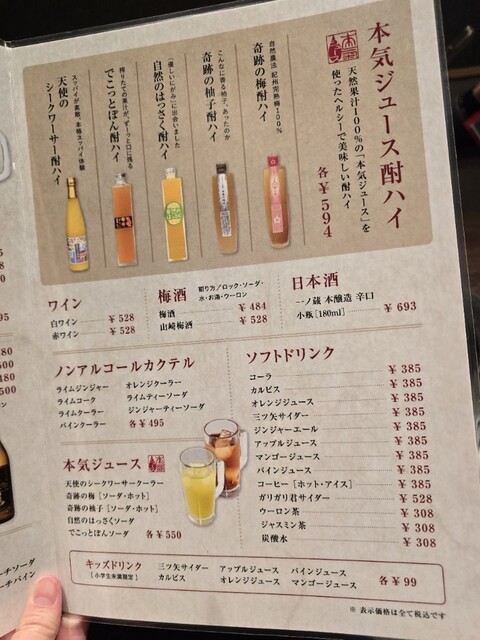 本気ジュース酎ハイ
天然果汁100%の「本気ジュース」を
使ったヘルシーで美味しい酎ハイ
各￥594
自然農法 紀州完熟梅100%
奇跡の梅酎ハイ
こんなに香る柚子、あったのか
奇跡の柚子酎ハイ
「優しいにがみ」に出会いました
自然のはっさく酎ハイ
搾りたての果汁が、ずーっと口に残る
でこっとぽん酎ハイ
スッパイが素敵、本格スッパイ体験
天使の
シークワーサー酎ハイ
ワイン
白ワイン ￥528
赤ワイン ￥528
梅酒 割り方／ロック・ソーダ・
水・お湯・ウーロン
梅酒 ￥484
山崎梅酒 ￥528
日本酒
一ノ蔵 本醸造 辛口
小瓶[180ml] ￥693
ノンアルコールカクテル
ライムジンジャー オレンジクーラー
ライムコーク ライムティーソーダ
ライムクーラー ジンジャーティーソーダ
パインクーラー 各￥495
本気ジュース
天使のシークワーサークーラー
奇跡の梅［ソーダ・ホット］
奇跡の柚子［ソーダ・ホット］
自然のはっさくソーダ
でこっとぽんソーダ 各￥550
ソフトドリンク
コーラ ￥385
カルピス ￥385
オレンジジュース ￥385
三ツ矢サイダー ￥385
ジンジャーエール ￥385
アップルジュース ￥385
マンゴージュース ￥385
パインジュース ￥385
コーヒー［ホット・アイス］ ￥385
ガリガリ君サイダー ￥528
ウーロン茶 ￥308
ジャスミン茶 ￥308
炭酸水 ￥308
キッズドリンク
［小学生未満限定］
三ツ矢サイダー アップルジュース パインジュース
カルピス オレンジジュース マンゴージュース 各￥99
※ 表示価格は全て税込です